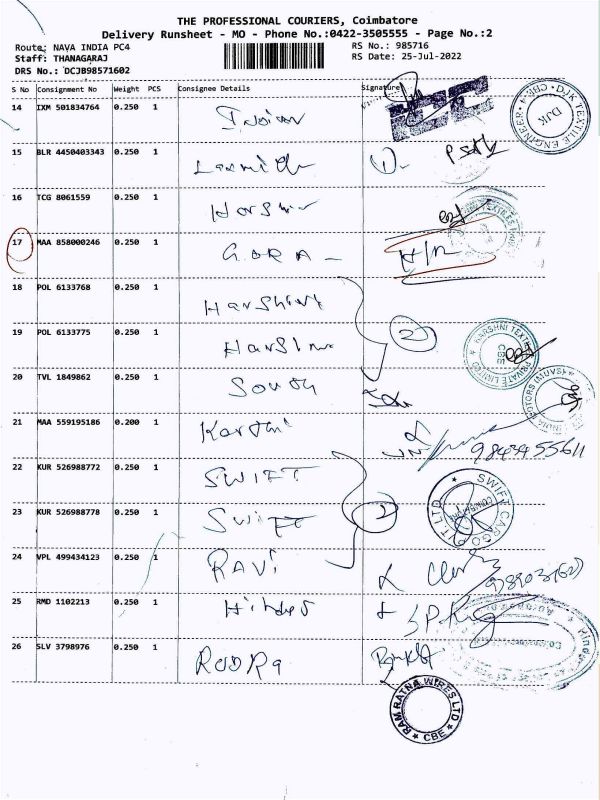 THE PROFESSIONAL COURIERS, Coimbatore
Delivery Runsheet - MO - Phone No.:0422-3505555 - Page No.:2
Route: NAVA INDIA PC4 RS No.: 985716
Staff: THANAGARAJ RS Date: 25-Jul-2022
DRS No.: DCJB98571602
S No Consignment No Weight PCS Consignee Details Signature
14 IXM 501834764 0.250 1
DJK TEXTILE ENGINEER CBE-4 DJK
15 BLR 4450403343 0.250 1
16 TCG 8061559 0.250 1 Harshni
17 MAA 858000246 0.250 1 GORA
18 POL 6133768 0.250 1 Harshini 2
19 POL 6133775 0.250 1 Harshni
HARSHNI TEXTILES PRIVATE LIMITED CBE
20 TVL 1849862 0.250 1 South
21 MAA 559195186 0.200 1 Karthi 9843455611
22 KUR 526988772 0.250 1 SWIFT
SWIFT CARGO PVT. LTD COIMBATORE
23 KUR 526988778 0.250 1 SWIFT 2
24 VPL 499434123 0.250 1 RAVI
25 RMD 1102213 0.250 1
26 SLV 3798976 0.250 1
RAM RATNA WIRES LTD CBE